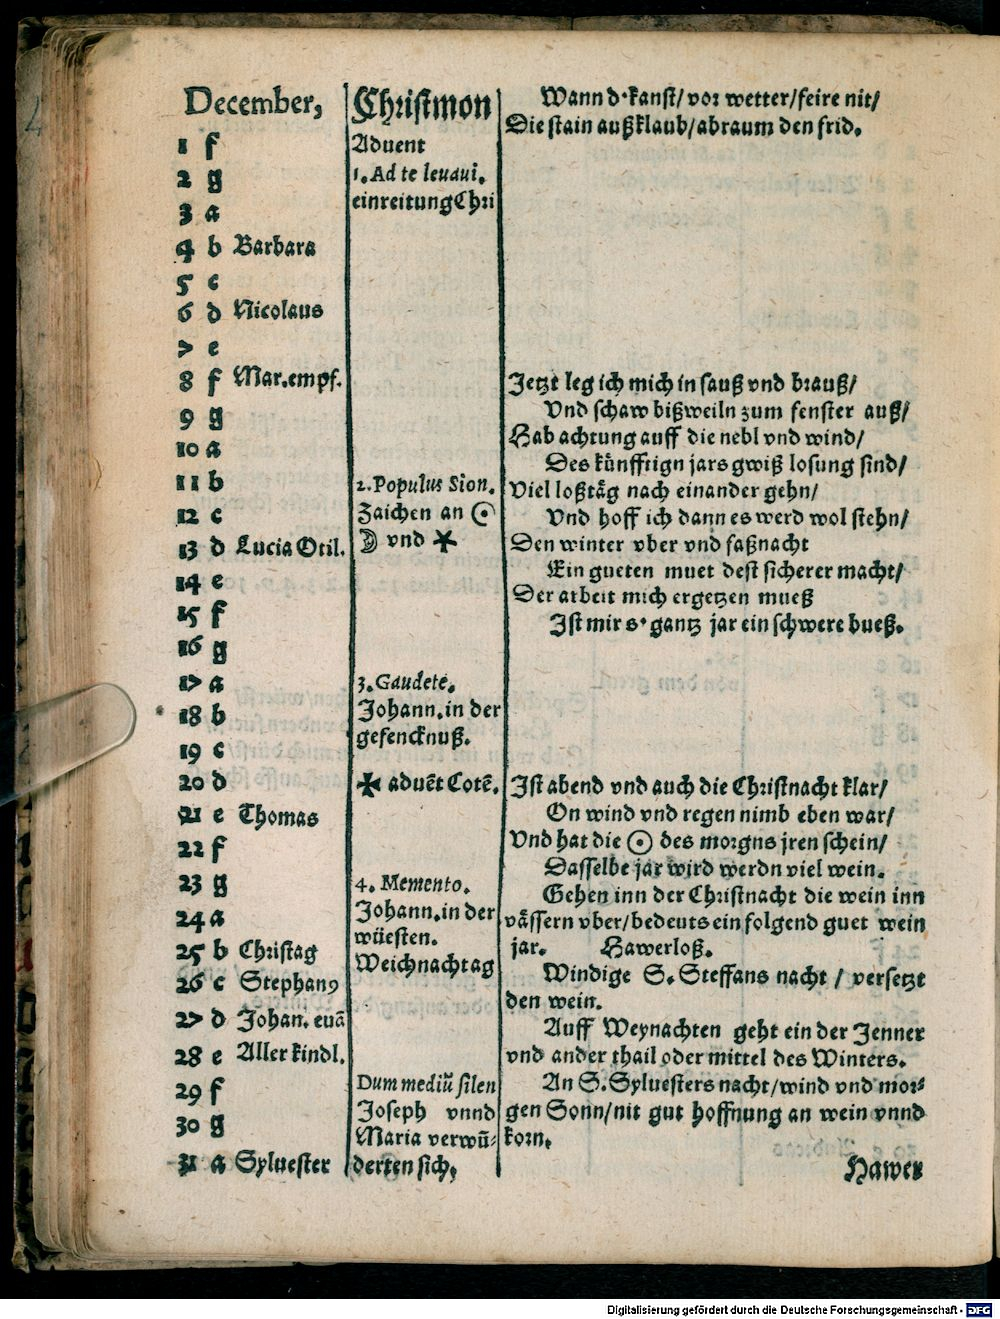 December,
1 f
2 g
3 a
4 b Barbara
5 c
6 d Nicolaus
7 e
8 f Mar.empf.
9 g
10 a
11 b
12 c
13 d Lucia Otil.
14 e
15 f
16 g
17 a
18 b
19 c
20 d
21 e Thomas
22 f
23 g
24 a
25 b Christag
26 c Stephanꝰ
27 d Johan. euā
28 e Aller kindl.
29 f
30 g
31 a Syluester
Christmon
Aduent
1. Ad te leuaui.
einreitung Chri
2. Populus Sion.
Zaichen an ☉
☽ vnd ✶
3. Gaudete.
Johann. in der
gefencknuß.
✠ aduēt Cotē.
4. Memento.
Johann. in der
wüesten.
Weichnachtag
Dum mediū silen
Joseph vnnd
Maria verwū-
derten sich.
Wann d' kanst/ vor wetter/ feire nit/
Die stain außklaub/ abraum den frid.
Jetzt leg ich mich in sauß vnd brauß/
Vnd schaw bißweiln zum fenster auß/
Hab achtung auff die nebl vnd wind/
Des künfftign jars gwiß losung sind/
Viel loßtäg nach einander gehn/
Vnd hoff ich dann es werd wol stehn/
Den winter vber vnd faßnacht
Ein gueten muet dest sicherer macht/
Der arbeit mich ergetzen mueß
Ist mir s' gantz jar ein schwere bueß.
Ist abend vnd auch die Christnacht klar/
On wind vnd regen nimb eben war/
Vnd hat die ☉ des morgns jren schein/
Dasselbe jar wird werdn viel wein.
Gehen inn der Christnacht die wein inn
vässern vber/ bedeuts ein folgend guet wein
jar. Hawerloß.
Windige S. Steffans nacht / versetzt
den wein.
Auff Weynachten geht ein der Jenner
vnd ander thail oder mittel des Winters.
An S. Syluesters nacht/ wind vnd mor-
gen Sonn/ nit gut hoffnung an wein vnnd
korn.
Hawer
Digitalisierung gefördert durch die Deutsche Forschungsgemeinschaft - DFG